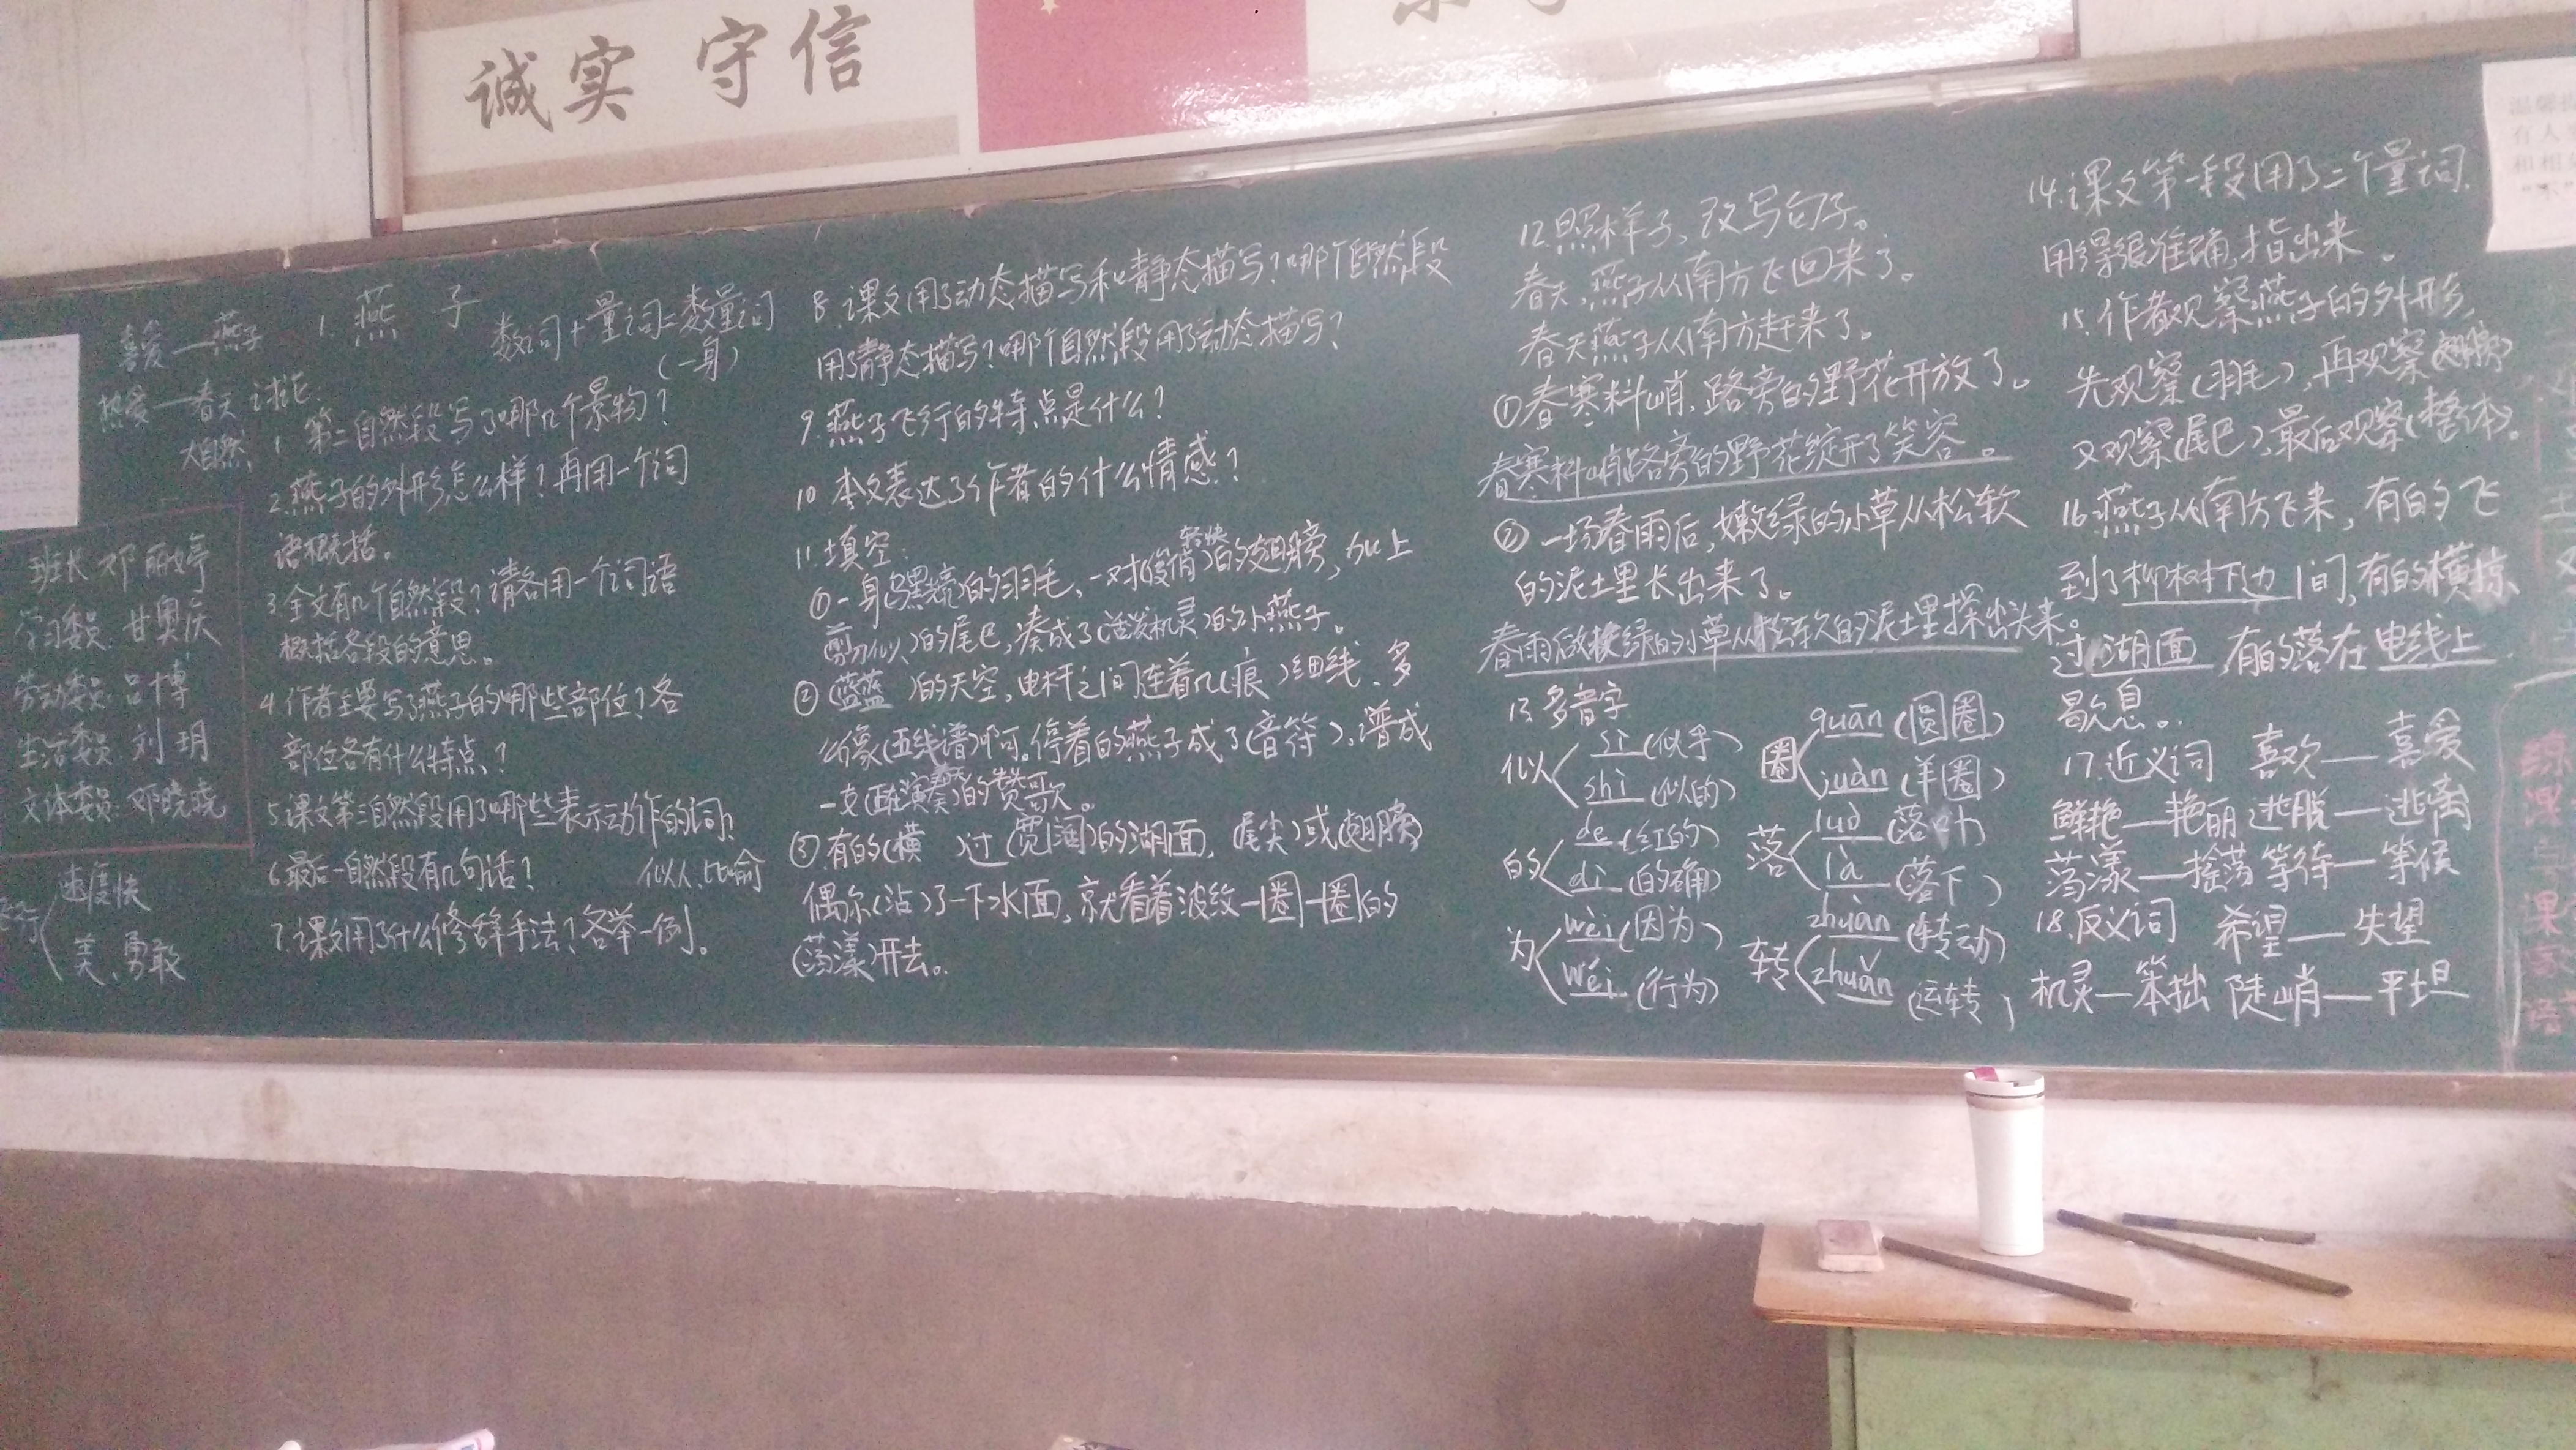 诚实 守信
喜爱——燕子
热爱——春天
大自然
班长 邓丽婷
学习委员 甘奥庆
劳动委员 吕博
生活委员 刘玥
文体委员 邓晓晓
速度快
美、勇敢
1. 燕 子
数词+量词=数量词
(一身)
讨论:
1 第二自然段写了哪几个景物?
2.燕子的外形怎么样?再用一个词
语概括。
3 全文有几个自然段?请各用一个词语
概括各段的意思。
4.作者主要写了燕子的哪些部位?各
部位各有什么特点?
5.课文第三自然段用了哪些表示动作的词?
6.最后一自然段有几句话? 似人、比喻
7.课文用了什么修辞手法?各举一例。
8.课文用了动态描写和静态描写?哪个自然段
用了静态描写?哪个自然段用了动态描写?
9.燕子飞行的特点是什么?
10 本文表达了作者的什么情感?
11.填空:
轻快
①一身(乌黑光亮)的羽毛,一对(俊俏)的翅膀,加上
(剪刀似)的尾巴,凑成了(活泼机灵)的小燕子。
②(蓝蓝)的天空,电杆之间连着几(痕)细线,多
么像(五线谱)啊。停着的燕子成了(音符),谱成
一支(正在演奏)的赞歌。
③有的(横 )过(宽阔)的湖面,(尾尖)或(翅膀)
偶尔(沾)了一下水面,就看着波纹一圈一圈的
(荡漾)开去。
12.照样子,改写句子。
春天,燕子从南方飞回来了。
春天燕子从南方赶来了。
①春寒料峭,路旁的野花开放了。
春寒料峭路旁的野花绽开了笑容。
②一场春雨后,嫩绿的小草从松软
的泥土里长出来了。
春雨后嫩绿的小草从松软的泥土里探出头来。
13.多音字
似 sì(似乎) shì(似的)
圈 quān(圆圈) juàn(羊圈)
的 de(红的) dí(的确)
落 luò(落叶) là(落下)
为 wèi(因为) wéi(行为)
转 zhuàn(转动) zhuǎn(运转)
14.课文第一段用了三个量词,
用得很准确,指出来。
15.作者观察燕子的外形,
先观察(羽毛),再观察(翅膀)
又观察(尾巴),最后观察(整体)。
16.燕子从南方飞来,有的飞
到了柳树下边 间,有的横掠
过湖面,有的落在电线上
歇息。
17.近义词 喜欢——喜爱
鲜艳——艳丽 逃脱——逃离
荡漾——摇荡 等待——等候
18.反义词 希望——失望
机灵—笨拙 陡峭——平坦